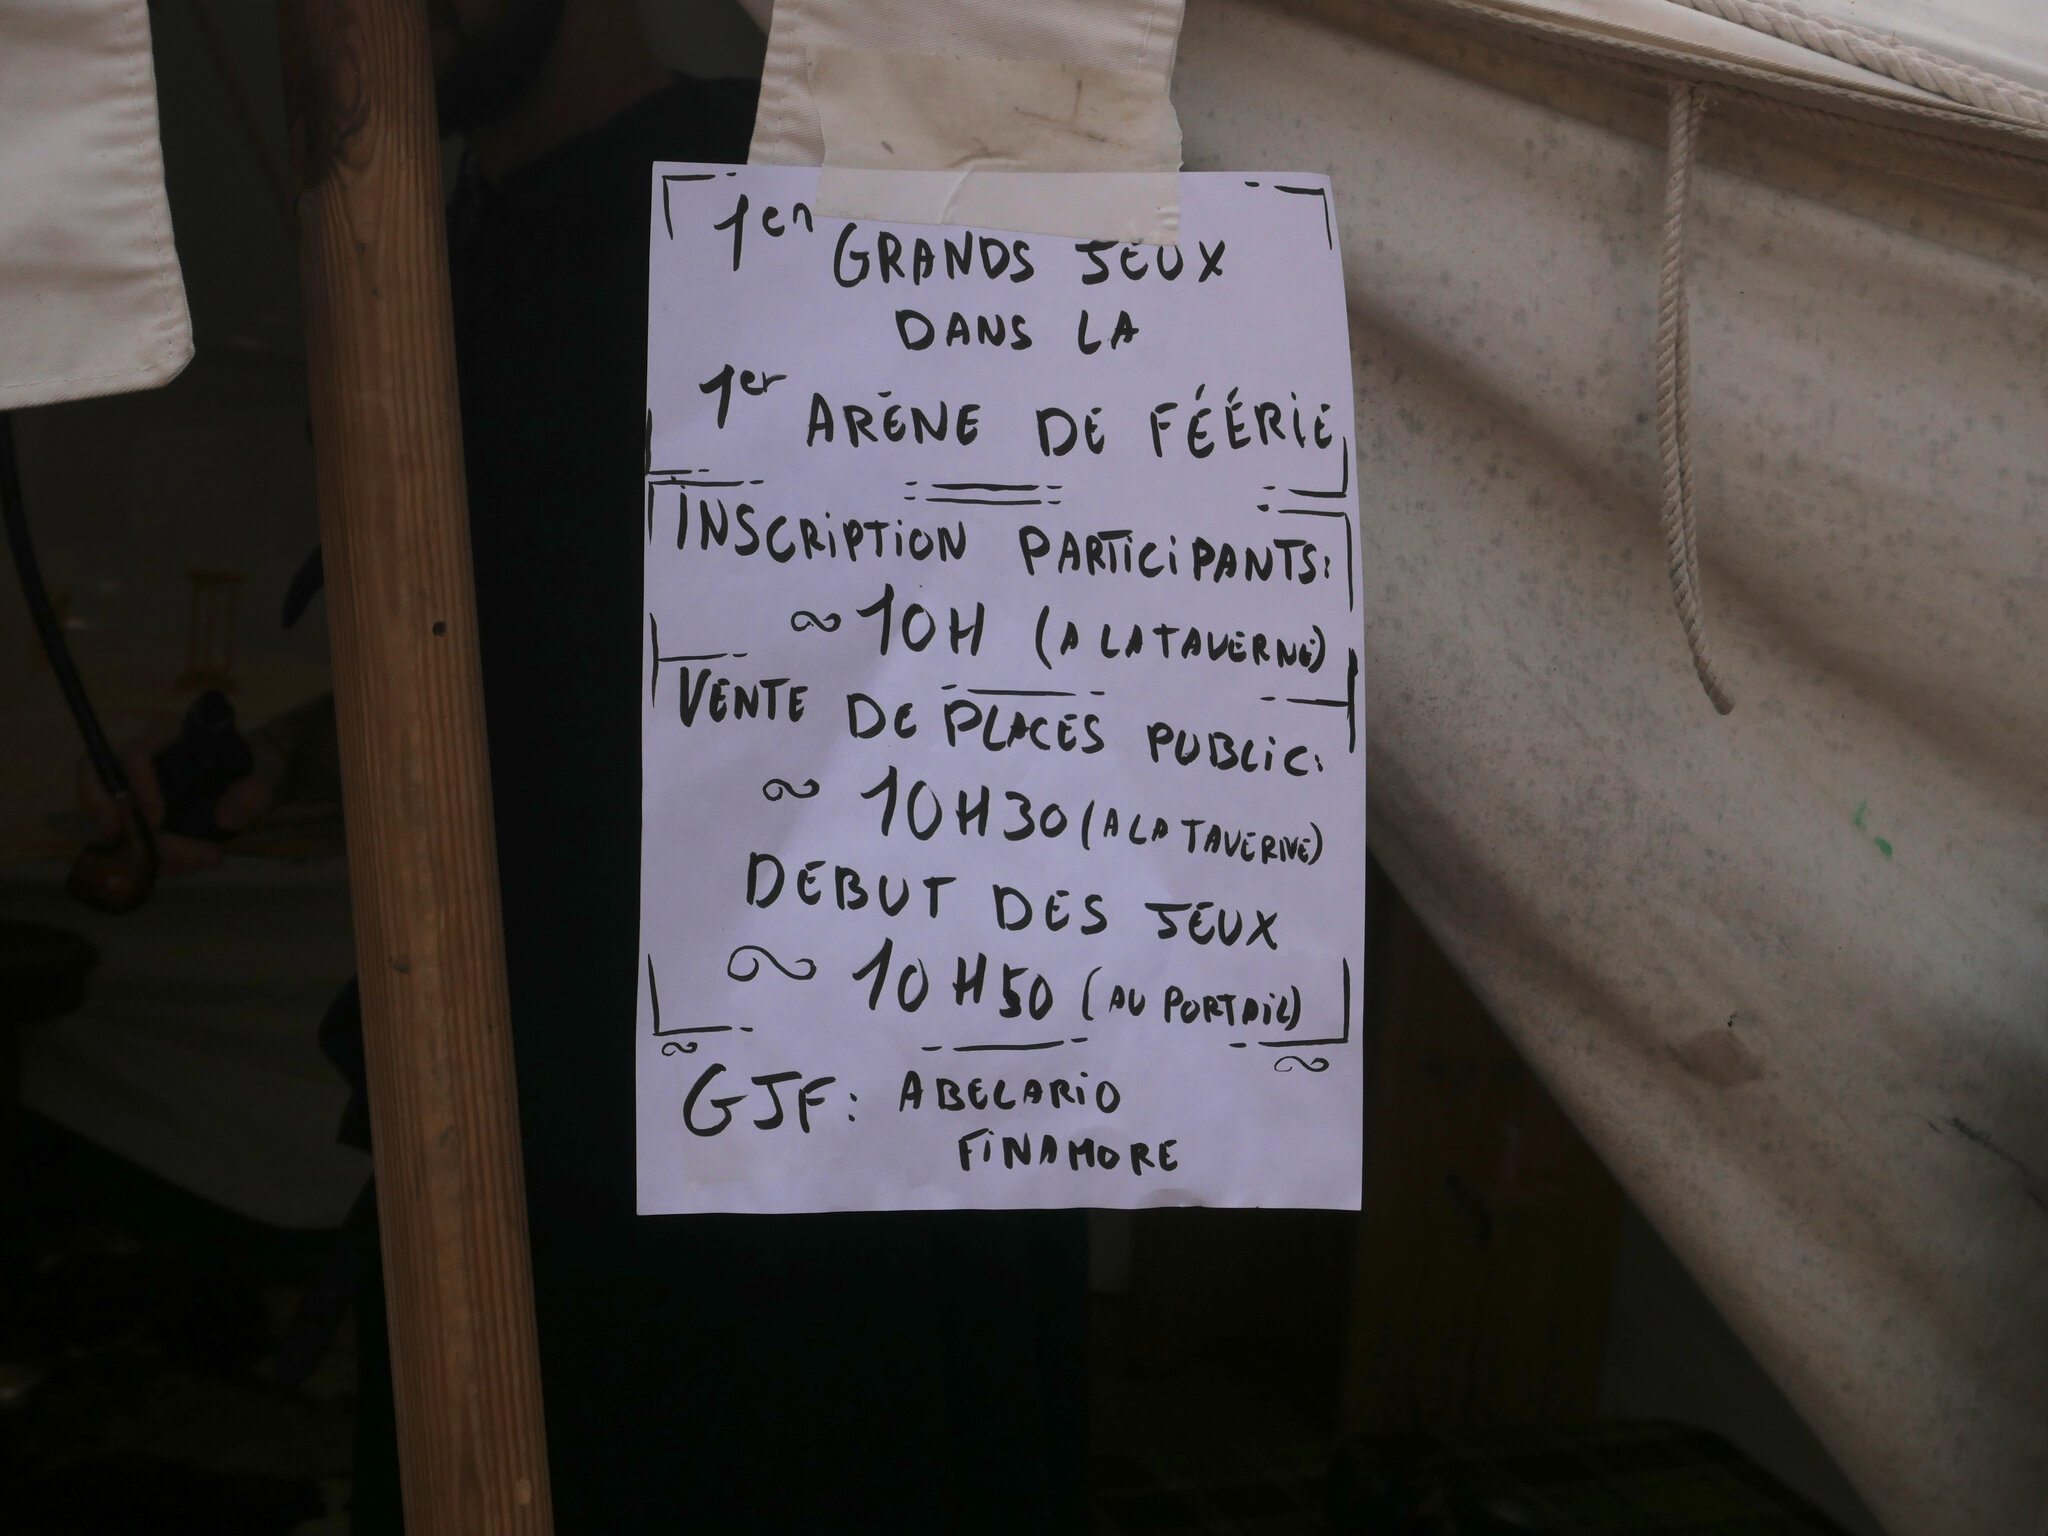 1er GRANDS JEUX
DANS LA
1er ARÈNE DE FÉÉRIE
INSCRIPTION PARTICIPANTS:
~ 10H (A LA TAVERNE)
VENTE DE PLACES PUBLIC:
~ 10H30 (A LA TAVERNE)
DEBUT DES JEUX
~ 10H50 (AU PORTAIL)
GJF: ABELARIO
FINAMORE